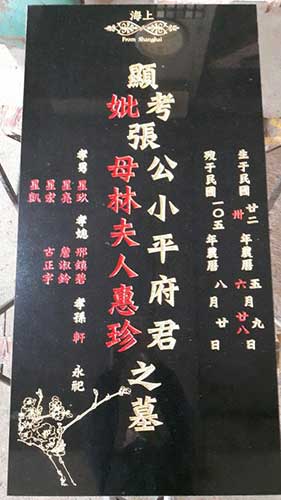 上海
From Shanghai
生于民國廿二卅年農曆五六月九廿八日
歿于民國一〇五年農曆八月廿日
顯考張公小平府君之墓
妣母林夫人惠珍
孝男 星玖 孝媳 邢鎮碧 孝孫 軒 永祀
星亮 詹淑鈴
星宏 古正宇
星凱